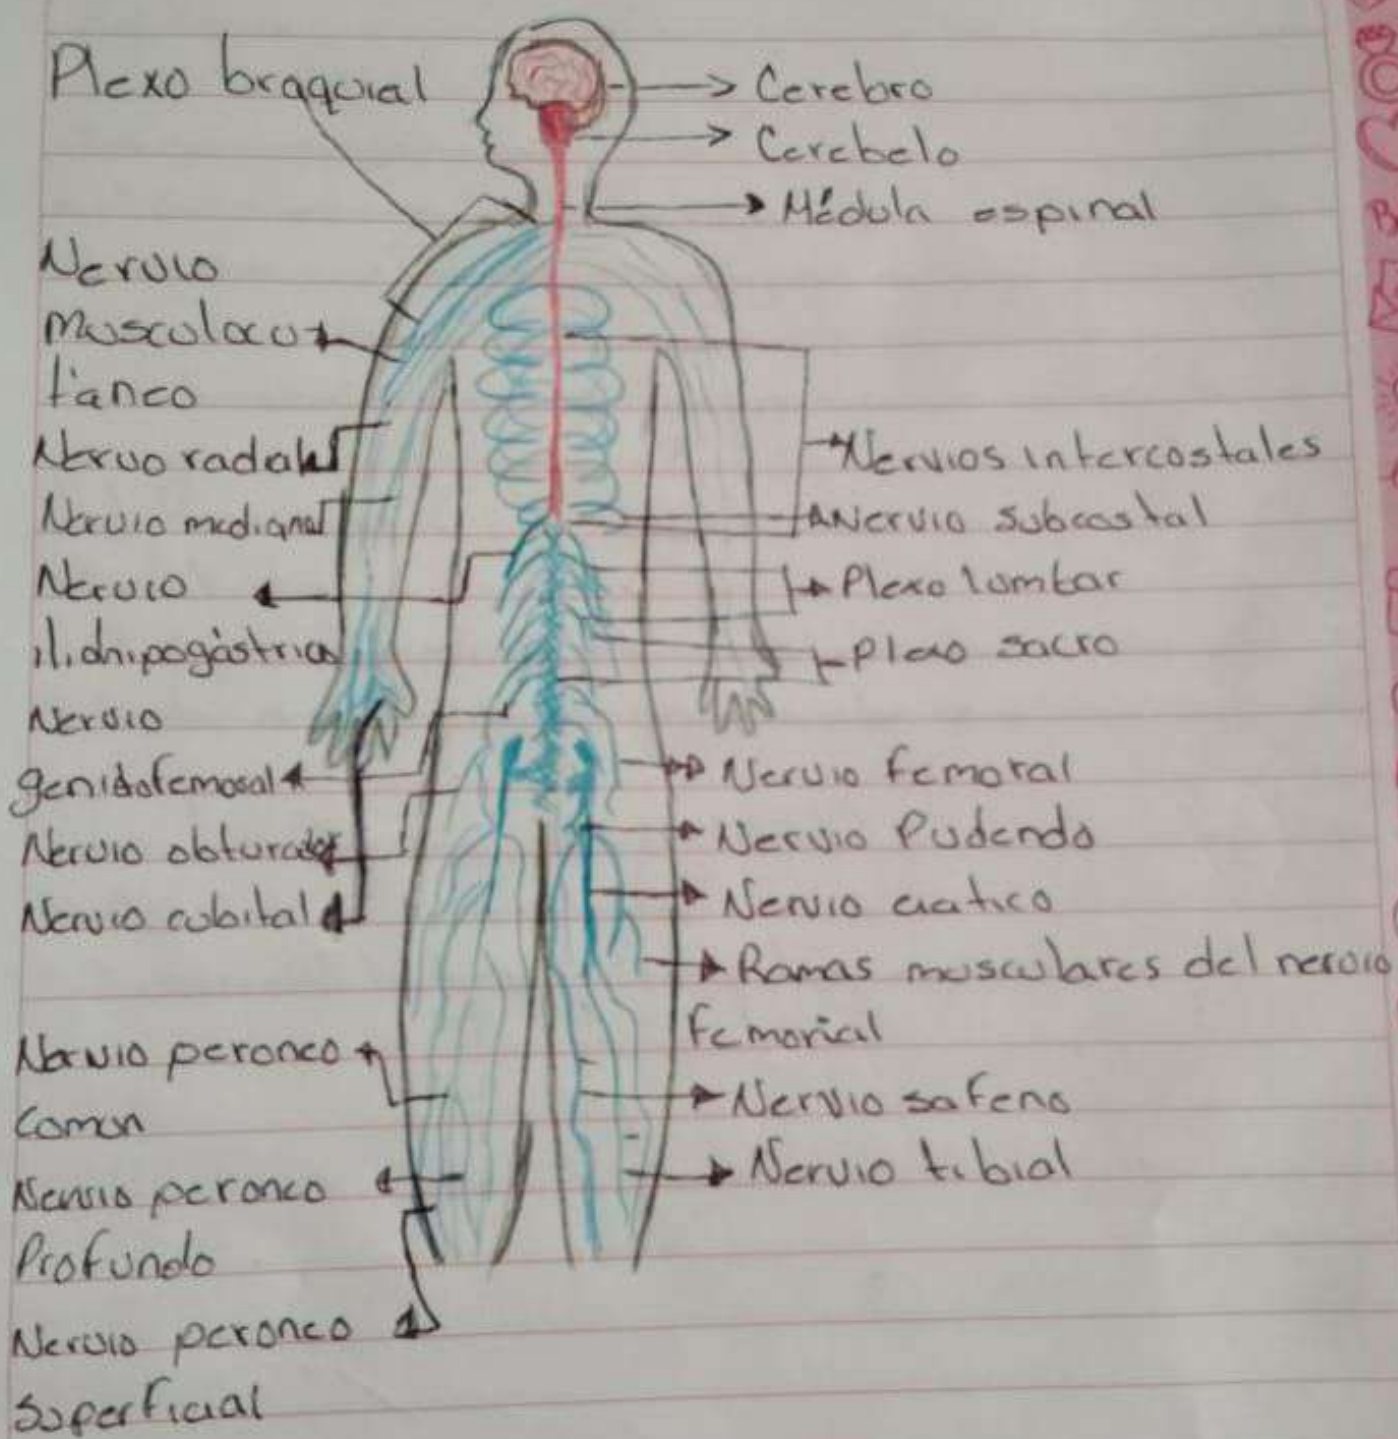 Plexo braquial
Nervio
musculocu
táneo
Nervo radal
Nervio medianal
Nervio
iliohipogástrico
Nervio
genidofemosal
Nervio obturador
Nervio cubital
Nervio peroneo
Comun
Nervio peroneo
Profundo
Nervio peroneo
Superficial
Cerebro
Cerebelo
Médula espinal
Nervios intercostales
Nervio subcostal
Plexo lumbar
Plexo sacro
Nervio femoral
Nervio Pudendo
Nervio ciatico
Ramas musculares del nervio
femorial
Nervio safeno
Nervio tibial